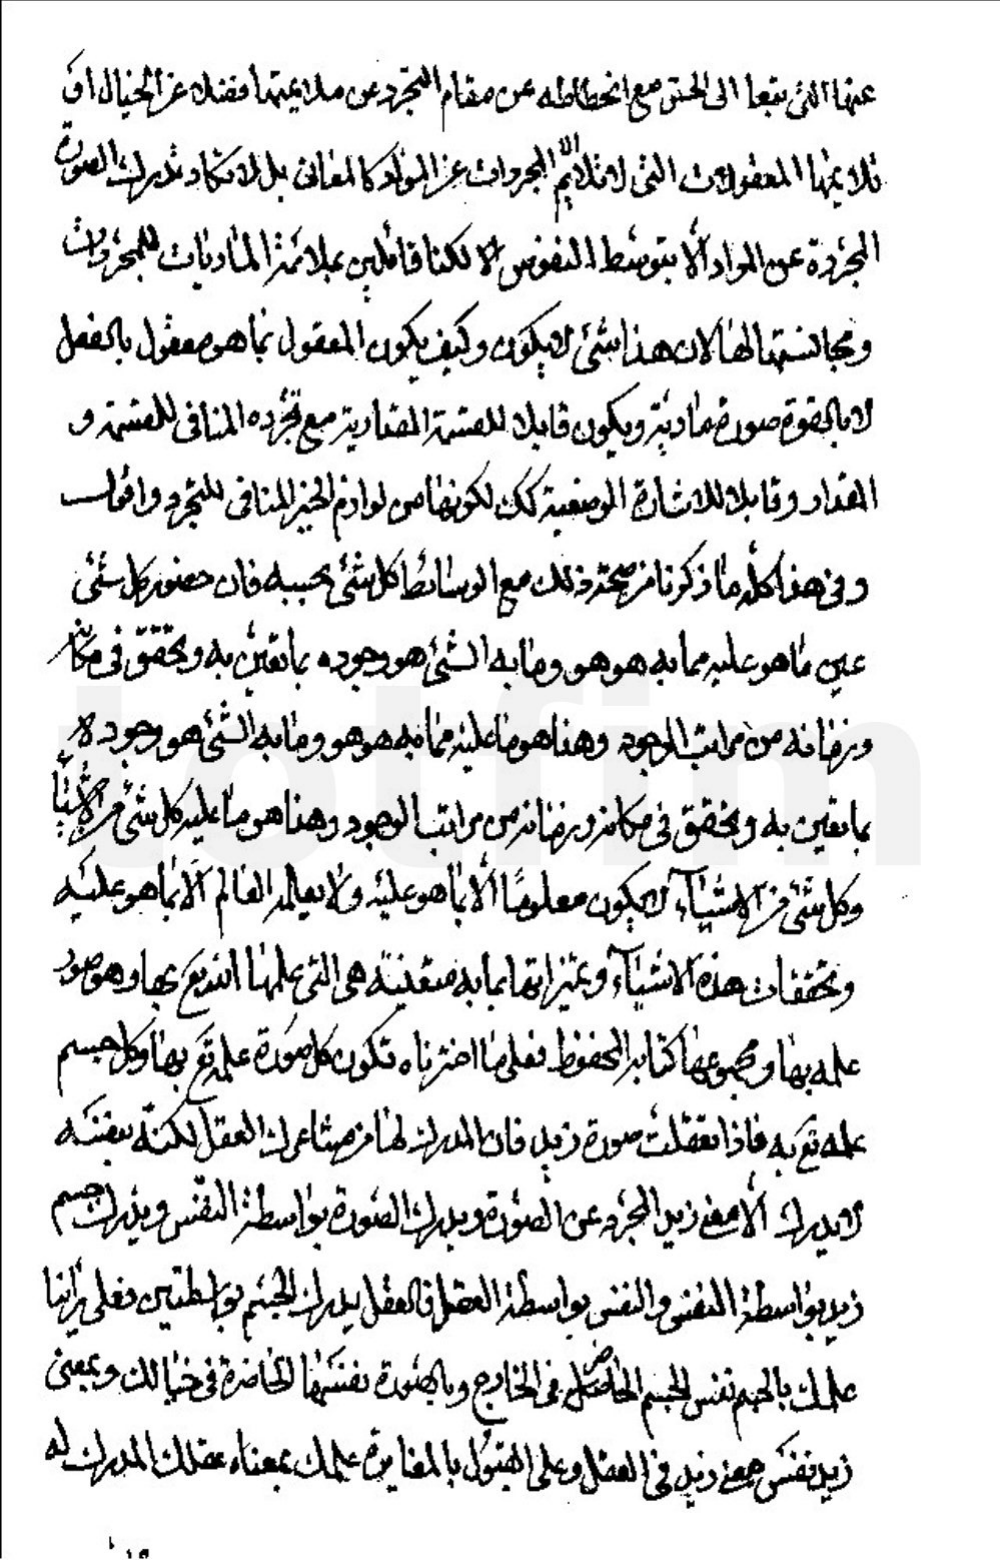 عنها التى تتبعها الى الحس مع انحطاطه عن مقام التجرد عن ملايمتها فضلا عن الخيال اى
تلايمها المعقولات التى لا تلايم الا المجردات عن المواد كالمعانى بل لا تكاد تدرك الصورة
المجردة عن المواد الا بتوسط النفوس لا لكنا قائلين بملائمة الماديات للمجردات
ومجانستها لها لان هذا شئ لا يكون وكيف يكون المعقول بما هو معقول بالفعل
لا بالقوة صورة مادية ويكون قابلا للقسمة المقدارية مع تجرده المنافى للقسمة و
المقدار وقابلا للاشارة الوضعية كك لكونها من لوازم الحيز المنافى للتجرد واقول
وفى هذا كله ما ذكرنا من صحة ذلك مع الوسائط كل شئ بحسبه فان حضور كل شئ
عين ما هو عليه مما به هو هو وما به الشئ هو وجوده بما تعين به وتحقق فى مكانه
وزمانه من مراتب الوجود وهذا هو ما عليه مما به هو هو وما به الشئ هو وجوده
بما تعين به وتحقق فى مكانه وزمانه من مراتب الوجود وهذا هو ما عليه كل شئ من الاشيا
وكل شئ من الاشياء لا يكون معلوما الا بما هو عليه ولا يعلمه العالم الا بما هو عليه
وتحققات هذه الاشياء وتميزاتها بما به متعينة هى التى علمها الله تع بها وهو صور
علمه بها ومجموعها كتابه الحفوظ فعلى ما اخترناه تكون كل صورة علمه تع بها وكل جسم
علمه تع به فاذا تعقلت صورة زيد فان المدرك لها من مشاعرك العقل لكنه بنفسه
لا يدرك الا معنى زيد المجرد عن الصورة ويدرك الصورة بواسطة النفس ويدرك جسم
زيد بواسطة النفس والنفس بواسطة العقل فالعقل يدرك الجسم بواسطتين فعلى راينا
علمك بالجسم نفس الجسم الحاضر فى الخارج وبالصورة نفسها الحاضرة فى خيالك وبمعنى
زيد نفس معنى زيد فى العقل وعلى القول بالمغايرة علمك بمعناه عقلك المدرك له